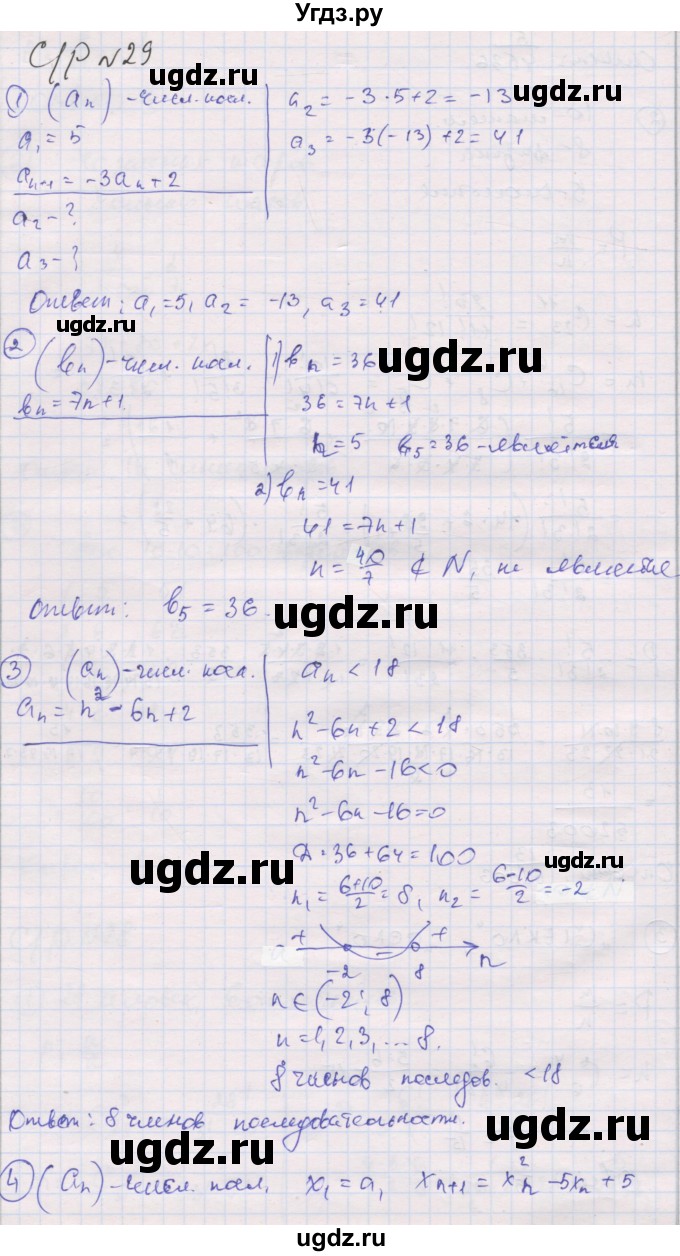 Угдз.ру
С/Р №29
ugdz.ru
ugdz.ru
1 (aₙ) - числ. посл.
a₁ = 5
aₙ₊₁ = -3aₙ + 2
a₂ - ?
a₃ - ?
a₂ = -3 · 5 + 2 = -13
a₃ = -3(-13) + 2 = 41
Ответ: a₁ = 5, a₂ = -13, a₃ = 41
ugdz.ru
ugdz.ru
2 (bₙ) - числ. посл.
bₙ = 7n + 1
1) bₙ = 36
36 = 7n + 1
n = 5 b₅ = 36 - является
2) bₙ = 41
41 = 7n + 1
n = 40/7 ∉ N, не является
Ответ: b₅ = 36
ugdz.ru
3 (aₙ) - числ. посл.
aₙ = n² - 6n + 2
aₙ < 18
n² - 6n + 2 < 18
n² - 6n - 16 < 0
n² - 6n - 16 = 0
Д = 36 + 64 = 100
n₁ = (6+10)/2 = 8, n₂ = (6-10)/2 = -2
ugdz.ru
ugdz.ru
+ - +
-2 8 n
n ∈ (-2; 8)
n = 1, 2, 3, ... 8.
8 членов последов. < 18
ugdz.ru
Ответ: 8 членов последовательности.
ugdz.ru
4 (aₙ) - числ. посл. x₁ = a, xₙ₊₁ = x²ₙ - 5xₙ + 5
ugdz.ru